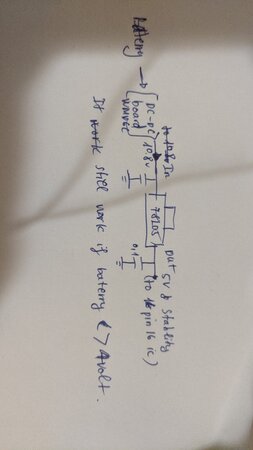 Battery →
DC-DC
board
10.8v
In
78L05
0.1
out 5v & Stability
(to pin 16 ic)
It still work if battery <> 4volt.